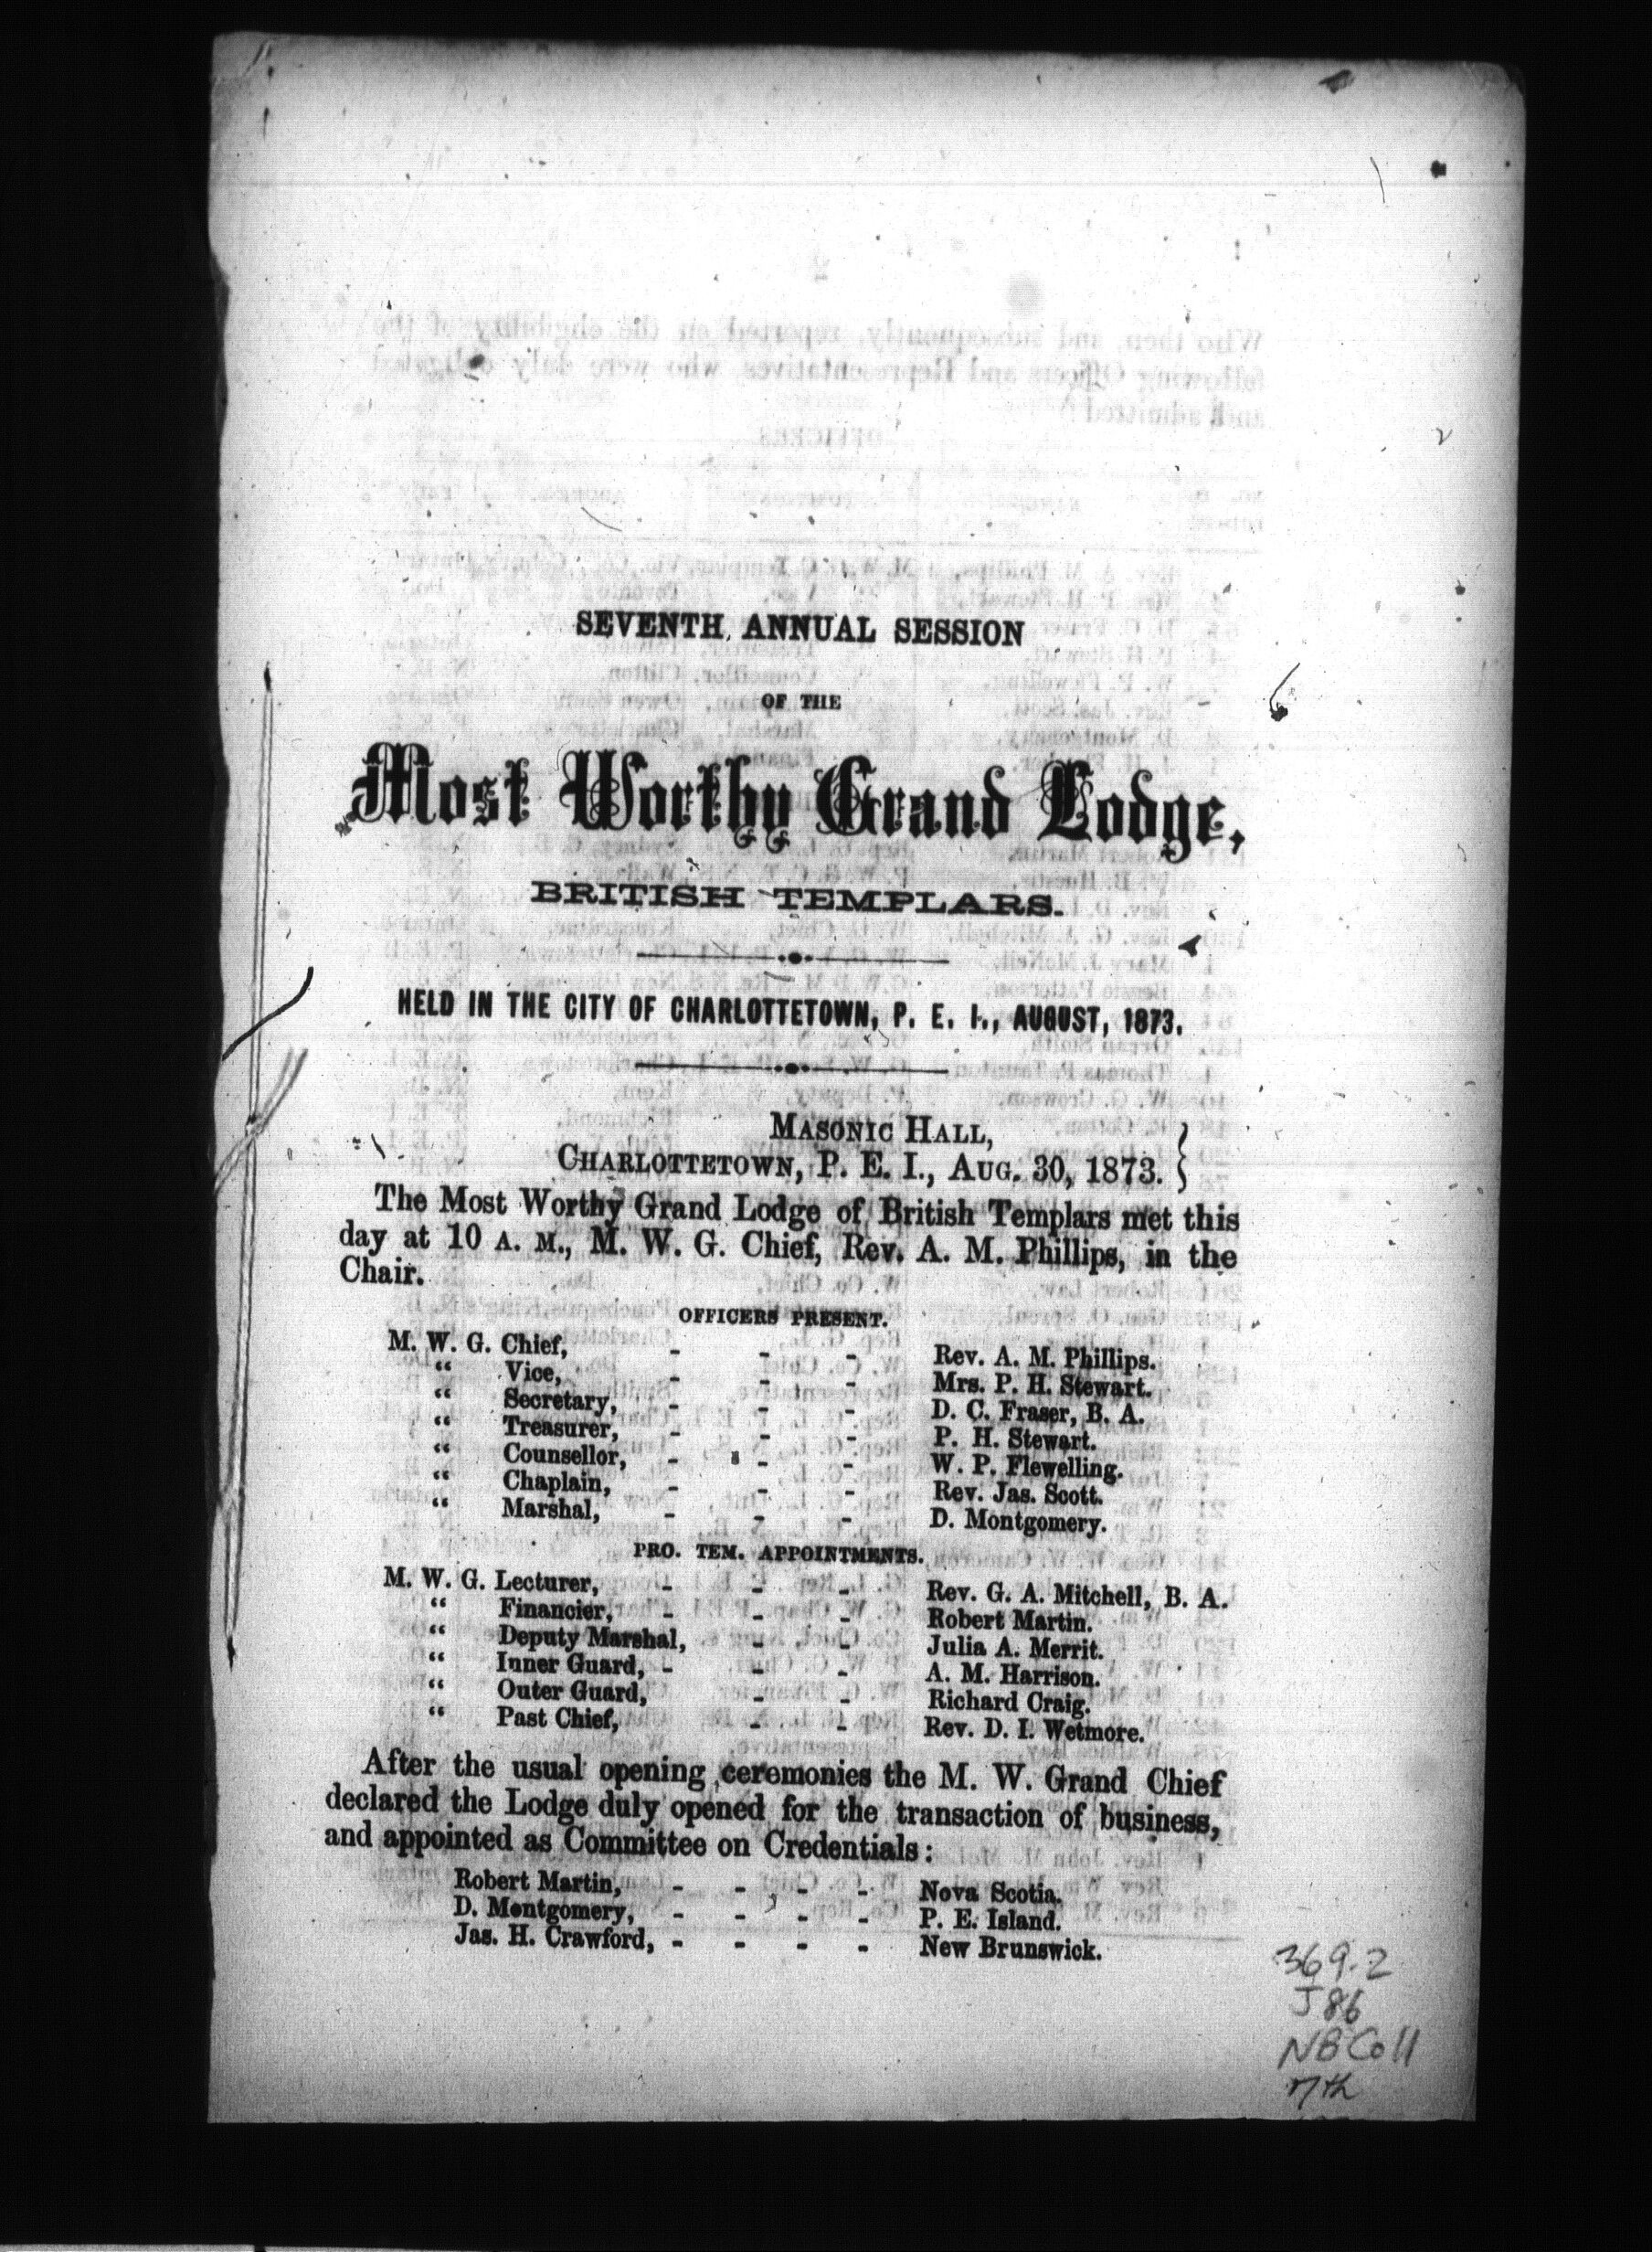 SEVENTH ANNUAL SESSION
OF THE
Most Worthy Grand Lodge,
BRITISH TEMPLARS.
HELD IN THE CITY OF CHARLOTTETOWN, P. E. I., AUGUST, 1873.
MASONIC HALL,
CHARLOTTETOWN, P. E. I., AUG. 30, 1873.
The Most Worthy Grand Lodge of British Templars met this
day at 10 A. M., M. W. G. Chief, Rev. A. M. Phillips, in the
Chair.
OFFICERS PRESENT.
M. W. G. Chief, - - - Rev. A. M. Phillips.
“ Vice, - - - Mrs. P. H. Stewart.
“ Secretary, - - - D. C. Fraser, B. A.
“ Treasurer, - - - P. H. Stewart.
“ Counsellor, - - - W. P. Flewelling.
“ Chaplain, - - - Rev. Jas. Scott.
“ Marshal, - - - D. Montgomery.
PRO. TEM. APPOINTMENTS.
M. W. G. Lecturer, - - - Rev. G. A. Mitchell, B. A.
“ Financier, - - - Robert Martin.
“ Deputy Marshal, - - Julia A. Merrit.
“ Inner Guard, - - - A. M. Harrison.
“ Outer Guard, - - Richard Craig.
“ Past Chief, - - Rev. D. I. Wetmore.
After the usual opening ceremonies the M. W. Grand Chief
declared the Lodge duly opened for the transaction of business,
and appointed as Committee on Credentials:
Robert Martin, - - - - Nova Scotia.
D. Montgomery, - - - - P. E. Island.
Jas. H. Crawford, - - - - New Brunswick.
369.2
J86
NBColl
7th